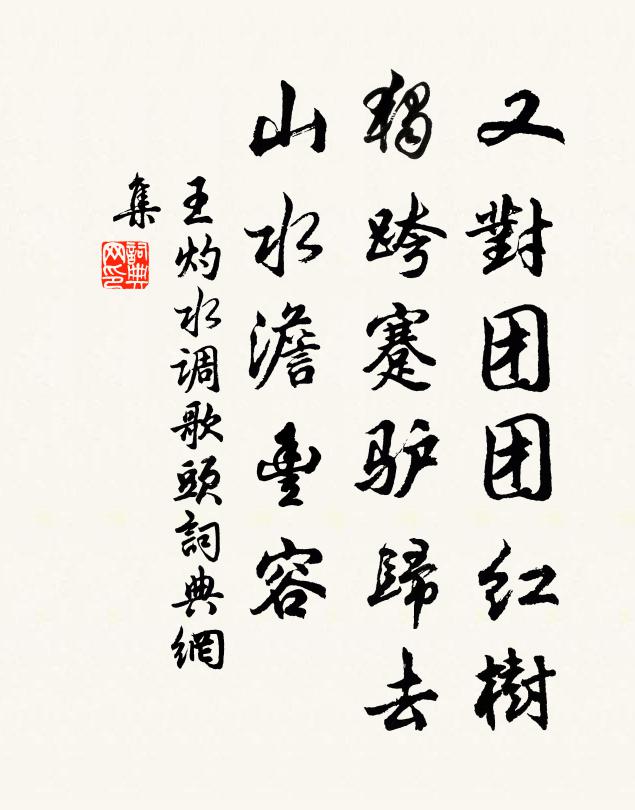 又對团团红樹
獨跨蹇驴歸去
山水澹豊容
王灼水调歌頭詞典網
集
詞典
网印